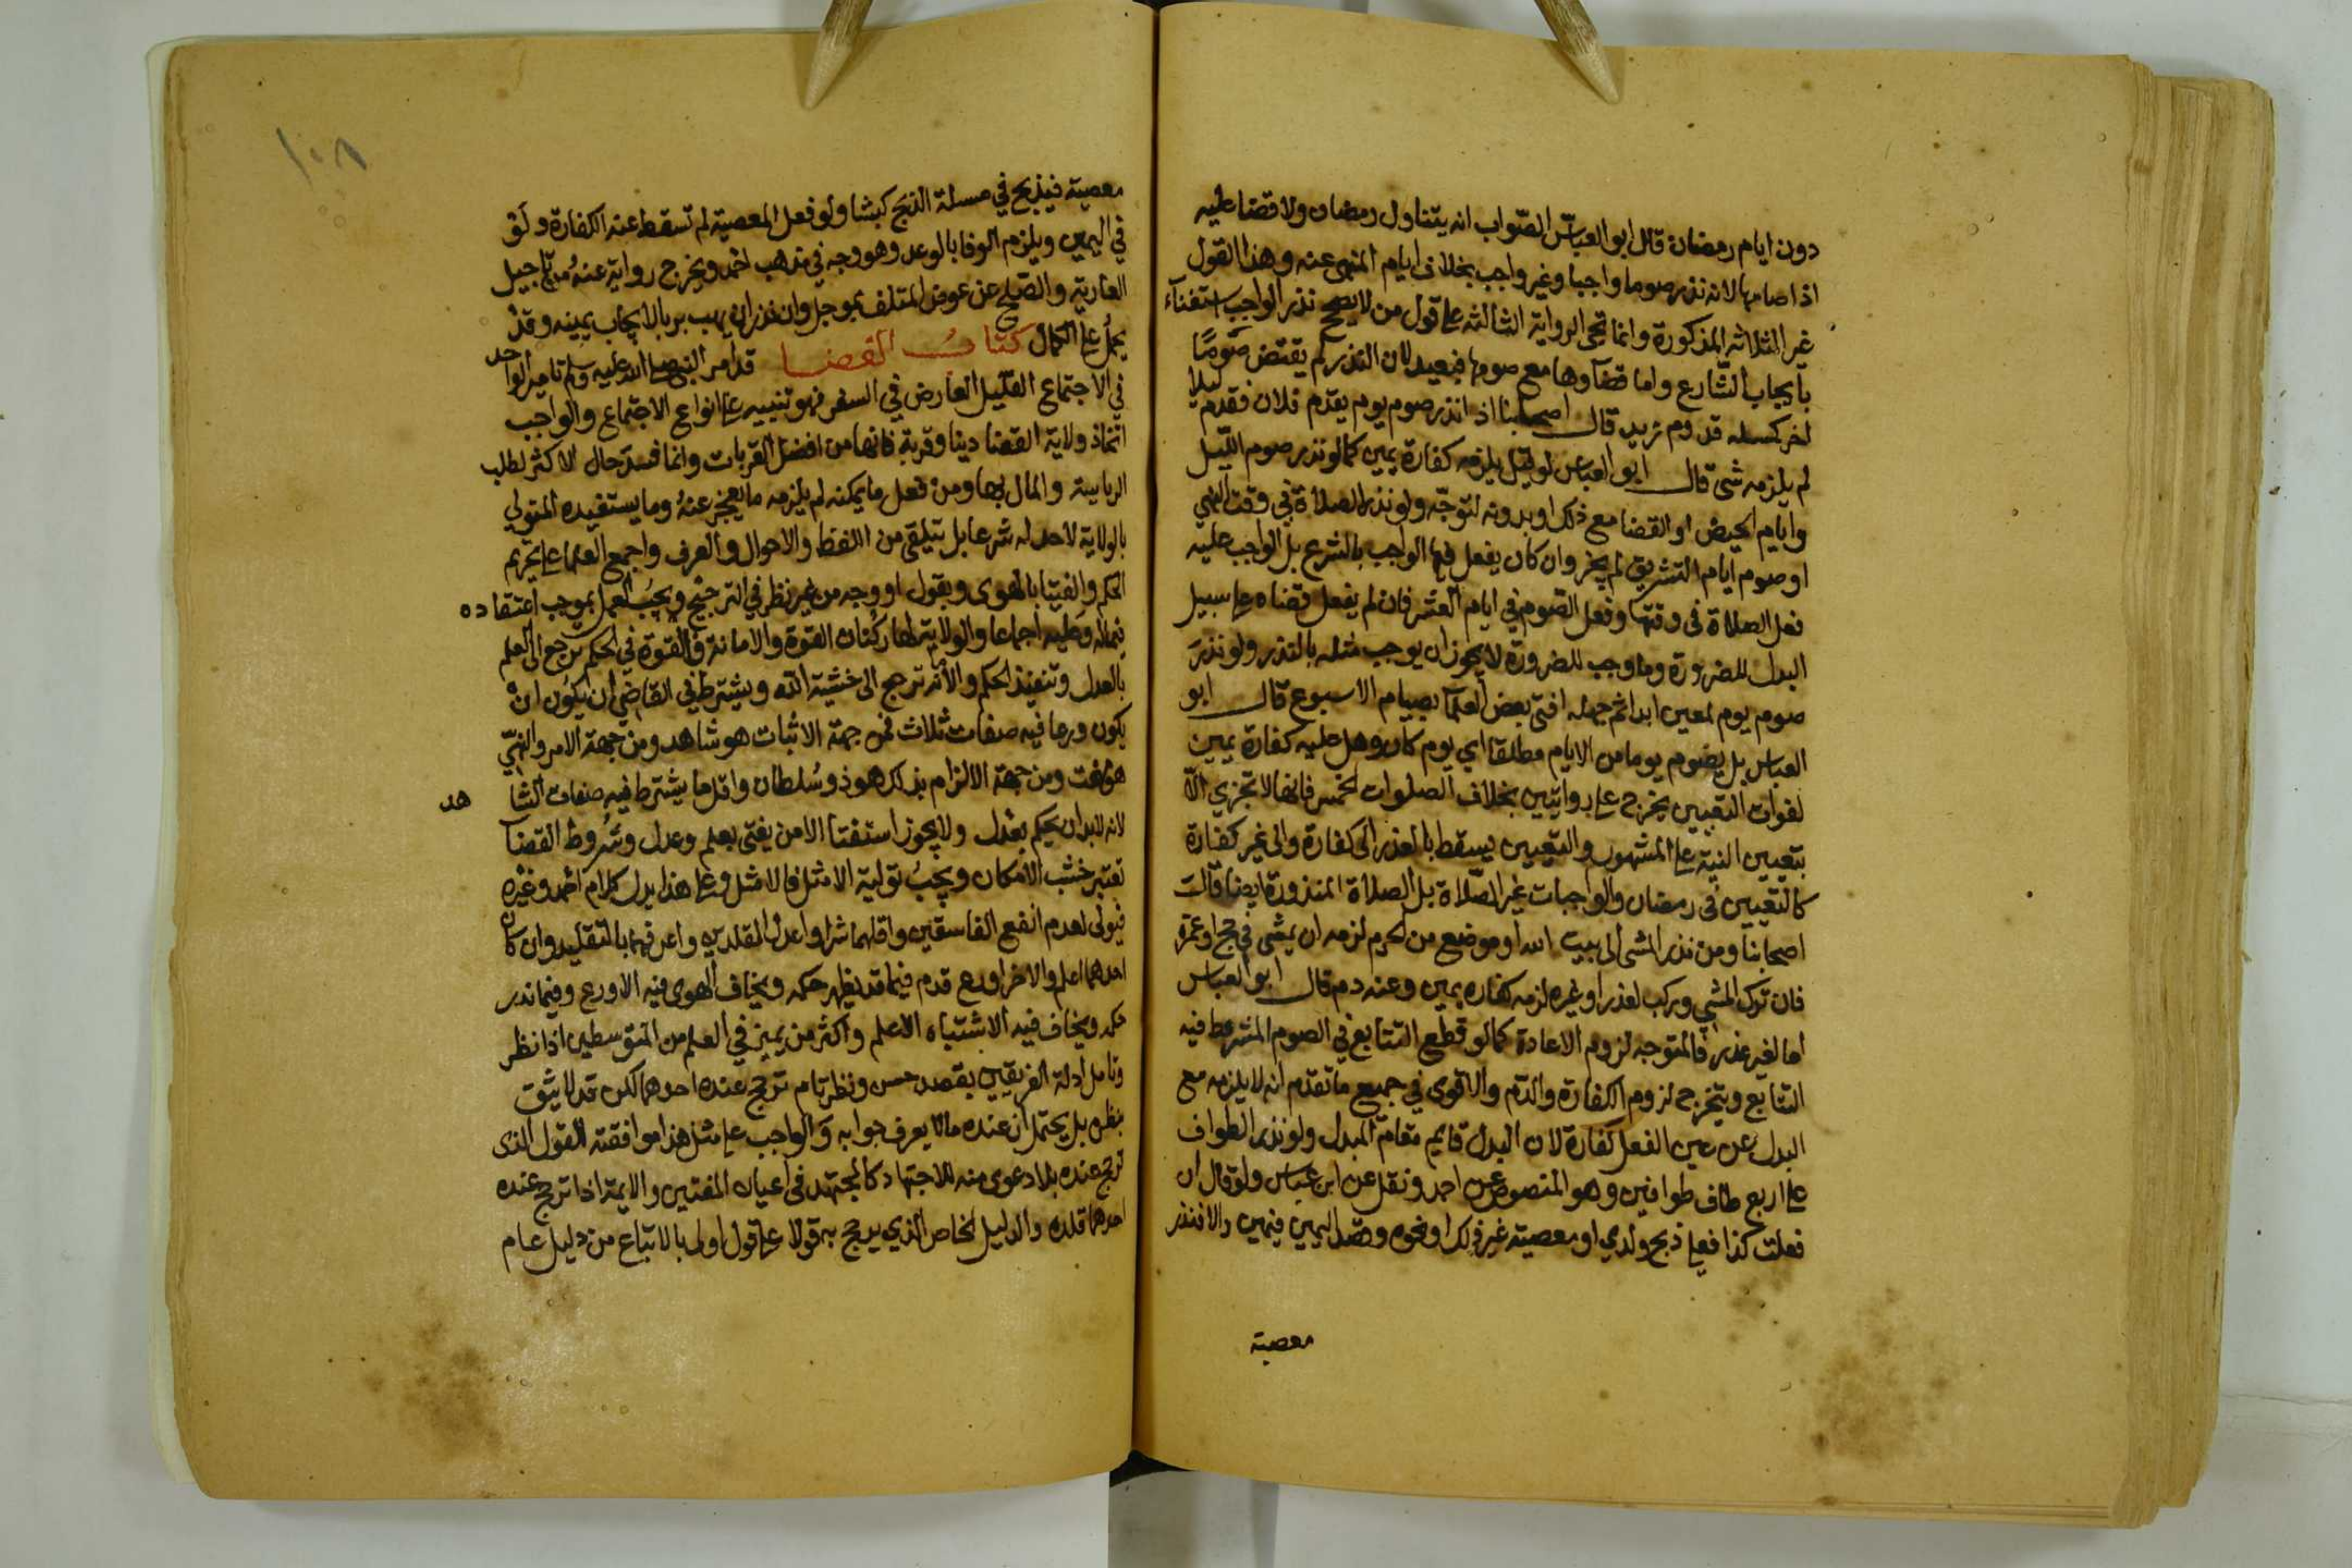 دون ايام رمضان قال ابو العباس الصواب انه يتناول رمضان ولا قضا عليه
اذا صامها لانه نذر صوما واجبا وغير واجب بخلاف ايام المنهى عنه وهذا القول
غير الثلاثه المذكورة وانما تجى الرواية الثالثه على قول من لا يصحح نذر الواجب استغنآء
بايجاب الشارع واما قضآوها مع صومها فبعيد لان النذر لم يقتض صوما
اخر كمسله قدوم زيد قال اصحابنا اذا نذر صوم يوم يقدم فلان فقدم ليلا
لم يلزمه شى قال ابو العباس لو قيل يلزمه كفارة يمين كما لو نذر صوم الليل
وايام الحيض او القضا مع ذلك او بدونه لتوجه ولو نذر الصلاة في وقت النهي
او صوم ايام التشريق لم يجز وان كان يفعل فيها الواجب بالشرع بل الواجب عليه
فعل الصلاة في وقتها وفعل الصوم في ايام العشر فان لم يفعل قضاه على سبيل
البدل للضرورة وما وجب للضرورة لا يجوز ان يوجب مثله بالنذر ولو نذر
صوم يوم لمعين ابدا ثم جهله افتى بعض العلمآ بصيام الاسبوع قال ابو
العباس بل يصوم يوما من الايام مطلقا اي يوم كان وهل عليه كفارة يمين
لفوات التعيين يخرج على روايتين بخلاف الصلوات الخمس فانها لا تجزي الا
بتعيين النية على المشهور والتعيين يسقط بالعذر الى كفارة والى غير كفارة
كالتعيين في رمضان والواجبات غير الصلاة بل الصلاة المنذورة ايضا قالت
اصحابنا ومن نذر المشى الى بيت الله او موضع من الحرم لزمه ان يمشى في حج او عمرة
فان ترك المشي وركب لعذر او غيره لزمه كفاره يمين وعنه دم قال ابو العباس
اما لغير عذر فالمتوجه لزوم الاعادة كما لو قطع التتابع في الصوم المشروط فيه
التتابع ويتخرج لزوم الكفارة والدم والاقوى في جميع ما تقدم انه لا يلزمه مع
البدل عن عين الفعل كفارة لان البدل قايم مقام المبدل ولو نذر الطواف
على اربع طاف طوافين وهو المنصوص عن احمد ونقل عن ابن عباس ولو قال ان
فعلت كذا فعلي ذبح ولدي او معصية غير ذلك او نحوه وقصد اليمين فيمين والا فنذر
معصية
١٠٨
معصية فيذبح في مسلة الذبح كبشا ولو فعل المعصية لم تسقط عنه الكفارة ولو
في اليمين ويلزم الوفا بالوعد وهو وجه في مذهب احمد ويخرج رواية عنه من تاجيل
العارية والصلح عن عوض المتلف بموجل وان نذر ان يهب بر بالايجاب يمينه وقد
يحمل على الكمال كتاب القضا قد امر النبي صلى الله عليه وسلم تامير الواحد
في الاجتماع القليل العارض في السفر فهو تنبيه على انواع الاجتماع والواجب
اتخاذ ولاية القضا دينا وقربة فانها من افضل القربات وانما فسد حال الاكثر لطلب
الرياسة والمال بها ومن فعل ما يمكنه لم يلزمه ما يعجز عنه وما يستفيده المتولي
بالولاية لا حد له شرعا بل يتلقى من اللفظ والاحوال والعرف واجمع العلما على تحريم
الحكم والفتيا بالهوى وبقول او وجه من غير نظر في الترجيح ويجب العمل بموجب اعتقاده
فيما له وعليه اجماعا والولاية لها ركنان القوة والامانة فالقوة في الحكم ترجع الى العلم
بالعدل وتنفيذ الحكم والامانه ترجع الى خشية الله ويشترط في القاضي ان يكون ان
يكون ورعا فيه صفات ثلاث فمن جهة الاثبات هو شاهد ومن جهة الامر والنهي
هو مفت ومن جهة الالزام بذلك هو ذو سلطان واقل ما يشترط فيه صفات الشاهد
لانه لابد ان يحكم بعدل ولا يجوز استفتا الا من يفتى بعلم وعدل وشروط القضآ
تعتبر حسب الامكان ويجب تولية الامثل فالامثل وعلى هذا يدل كلام احمد وغيره
فيولى لعدم انفع الفاسقين واقلهما شرا واعدل المقلدين واعرفهما بالتقليد وان كان
احدهما اعلم والاخر اورع قدم فيما قد يظهر حكمه ويخاف الهوى فيه الاورع وفيما ندر
حكمه ويخاف فيه الاشتباه الاعلم واكثر من يميز في العلم من المتوسطين اذا نظر
وتامل ادلة الفريقين بقصد حسن ونظر تام ترجح عنده احدهما لكن قد لا يثق
بنظره بل يحتمل ان عنده مالا يعرف جوابه والواجب على مثل هذا موافقته للقول الذى
ترجح عنده بلا دعوى منه للاجتهاد كالمجتهد في اعيان المفتين والايمة اذا ترجح عنده
احدهما قلده والدليل الخاص الذي يرجح به قولا على قول اولى بالاتباع من دليل عام